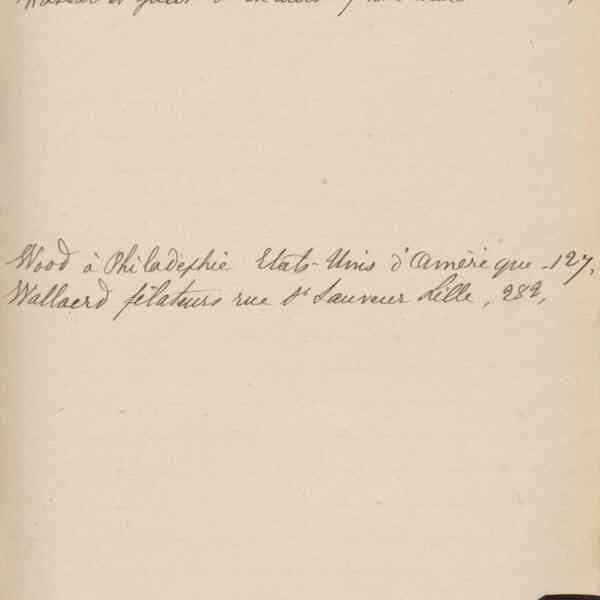 Wood à Philadephie Etats-Unis d'Amèrique - 127,
Wallaerd filateurs rue St Sauveur Lille, 282,